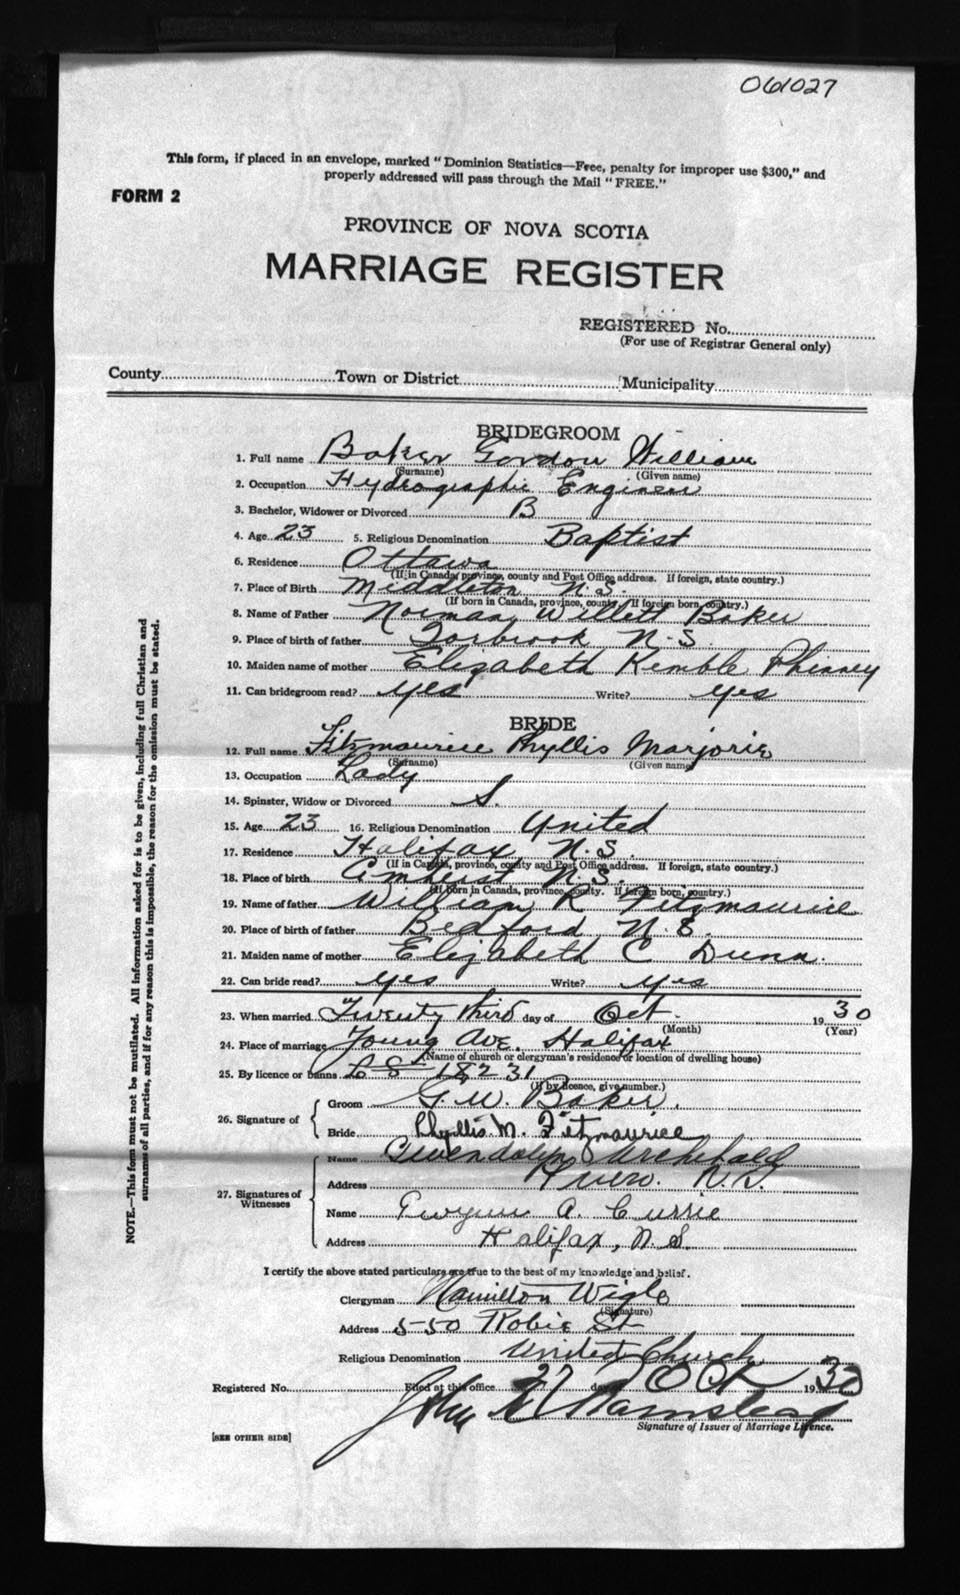 061027
This form, if placed in an envelope, marked "Dominion Statistics—Free, penalty for improper use $300," and
properly addressed will pass through the Mail "FREE."
FORM 2
PROVINCE OF NOVA SCOTIA
MARRIAGE REGISTER
REGISTERED No.
(For use of Registrar General only)
County Town or District Municipality
BRIDEGROOM
1. Full name Baker Gordon William
(Surname) (Given name)
2. Occupation Hydrographic Engineer
3. Bachelor, Widower or Divorced B
4. Age 23 5. Religious Denomination Baptist
6. Residence Ottawa
(If in Canada, province, county and Post Office address. If foreign, state country.)
7. Place of Birth Middleton N.S.
(If born in Canada, province, county. If foreign born, country.)
8. Name of Father Norman Willett Baker
9. Place of birth of father Torbrook N-S
10. Maiden name of mother Elizabeth Kemble Phinney
11. Can bridegroom read? yes Write? yes
BRIDE
12. Full name Fitzmaurice Phyllis Marjorie
(Surname) (Given name)
13. Occupation Lady
14. Spinster, Widow or Divorced S.
15. Age 23 16. Religious Denomination United
17. Residence Halifax, N.S.
(If in Canada, province, county and Post Office address. If foreign, state country.)
18. Place of birth Amherst N.S.
(If born in Canada, province, county. If foreign born, country.)
19. Name of father William R Fitzmaurice
20. Place of birth of father Bedford, N.S.
21. Maiden name of mother Elizabeth C Dunn.
22. Can bride read? yes Write? yes
23. When married Twenty third day of Oct. 1930
(Month) (Year)
24. Place of marriage Young Ave. Halifax
(Name of church or clergyman's residence or location of dwelling house)
25. By licence or banns 18231
(If by licence, give number.)
26. Signature of
Groom G. W. Baker.
Bride Phyllis M. Fitzmaurice
27. Signatures of Witnesses
Name Gwendolyn Archibald
Address Truro. N.S.
Name A. Currie
Address Halifax, N.S.
I certify the above stated particulars are true to the best of my knowledge and belief.
Clergyman Hamilton Wigle
(Signature)
Address 550 Robie St
Religious Denomination United Church.
Registered No. Filed at this office 27 day Oct 1930
John
Signature of Issuer of Marriage Licence.
[SEE OTHER SIDE]
NOTE.—This form must not be mutilated. All information asked for is to be given, including full Christian and
surnames of all parties, and if for any reason this is impossible, the reason for the omission must be stated.